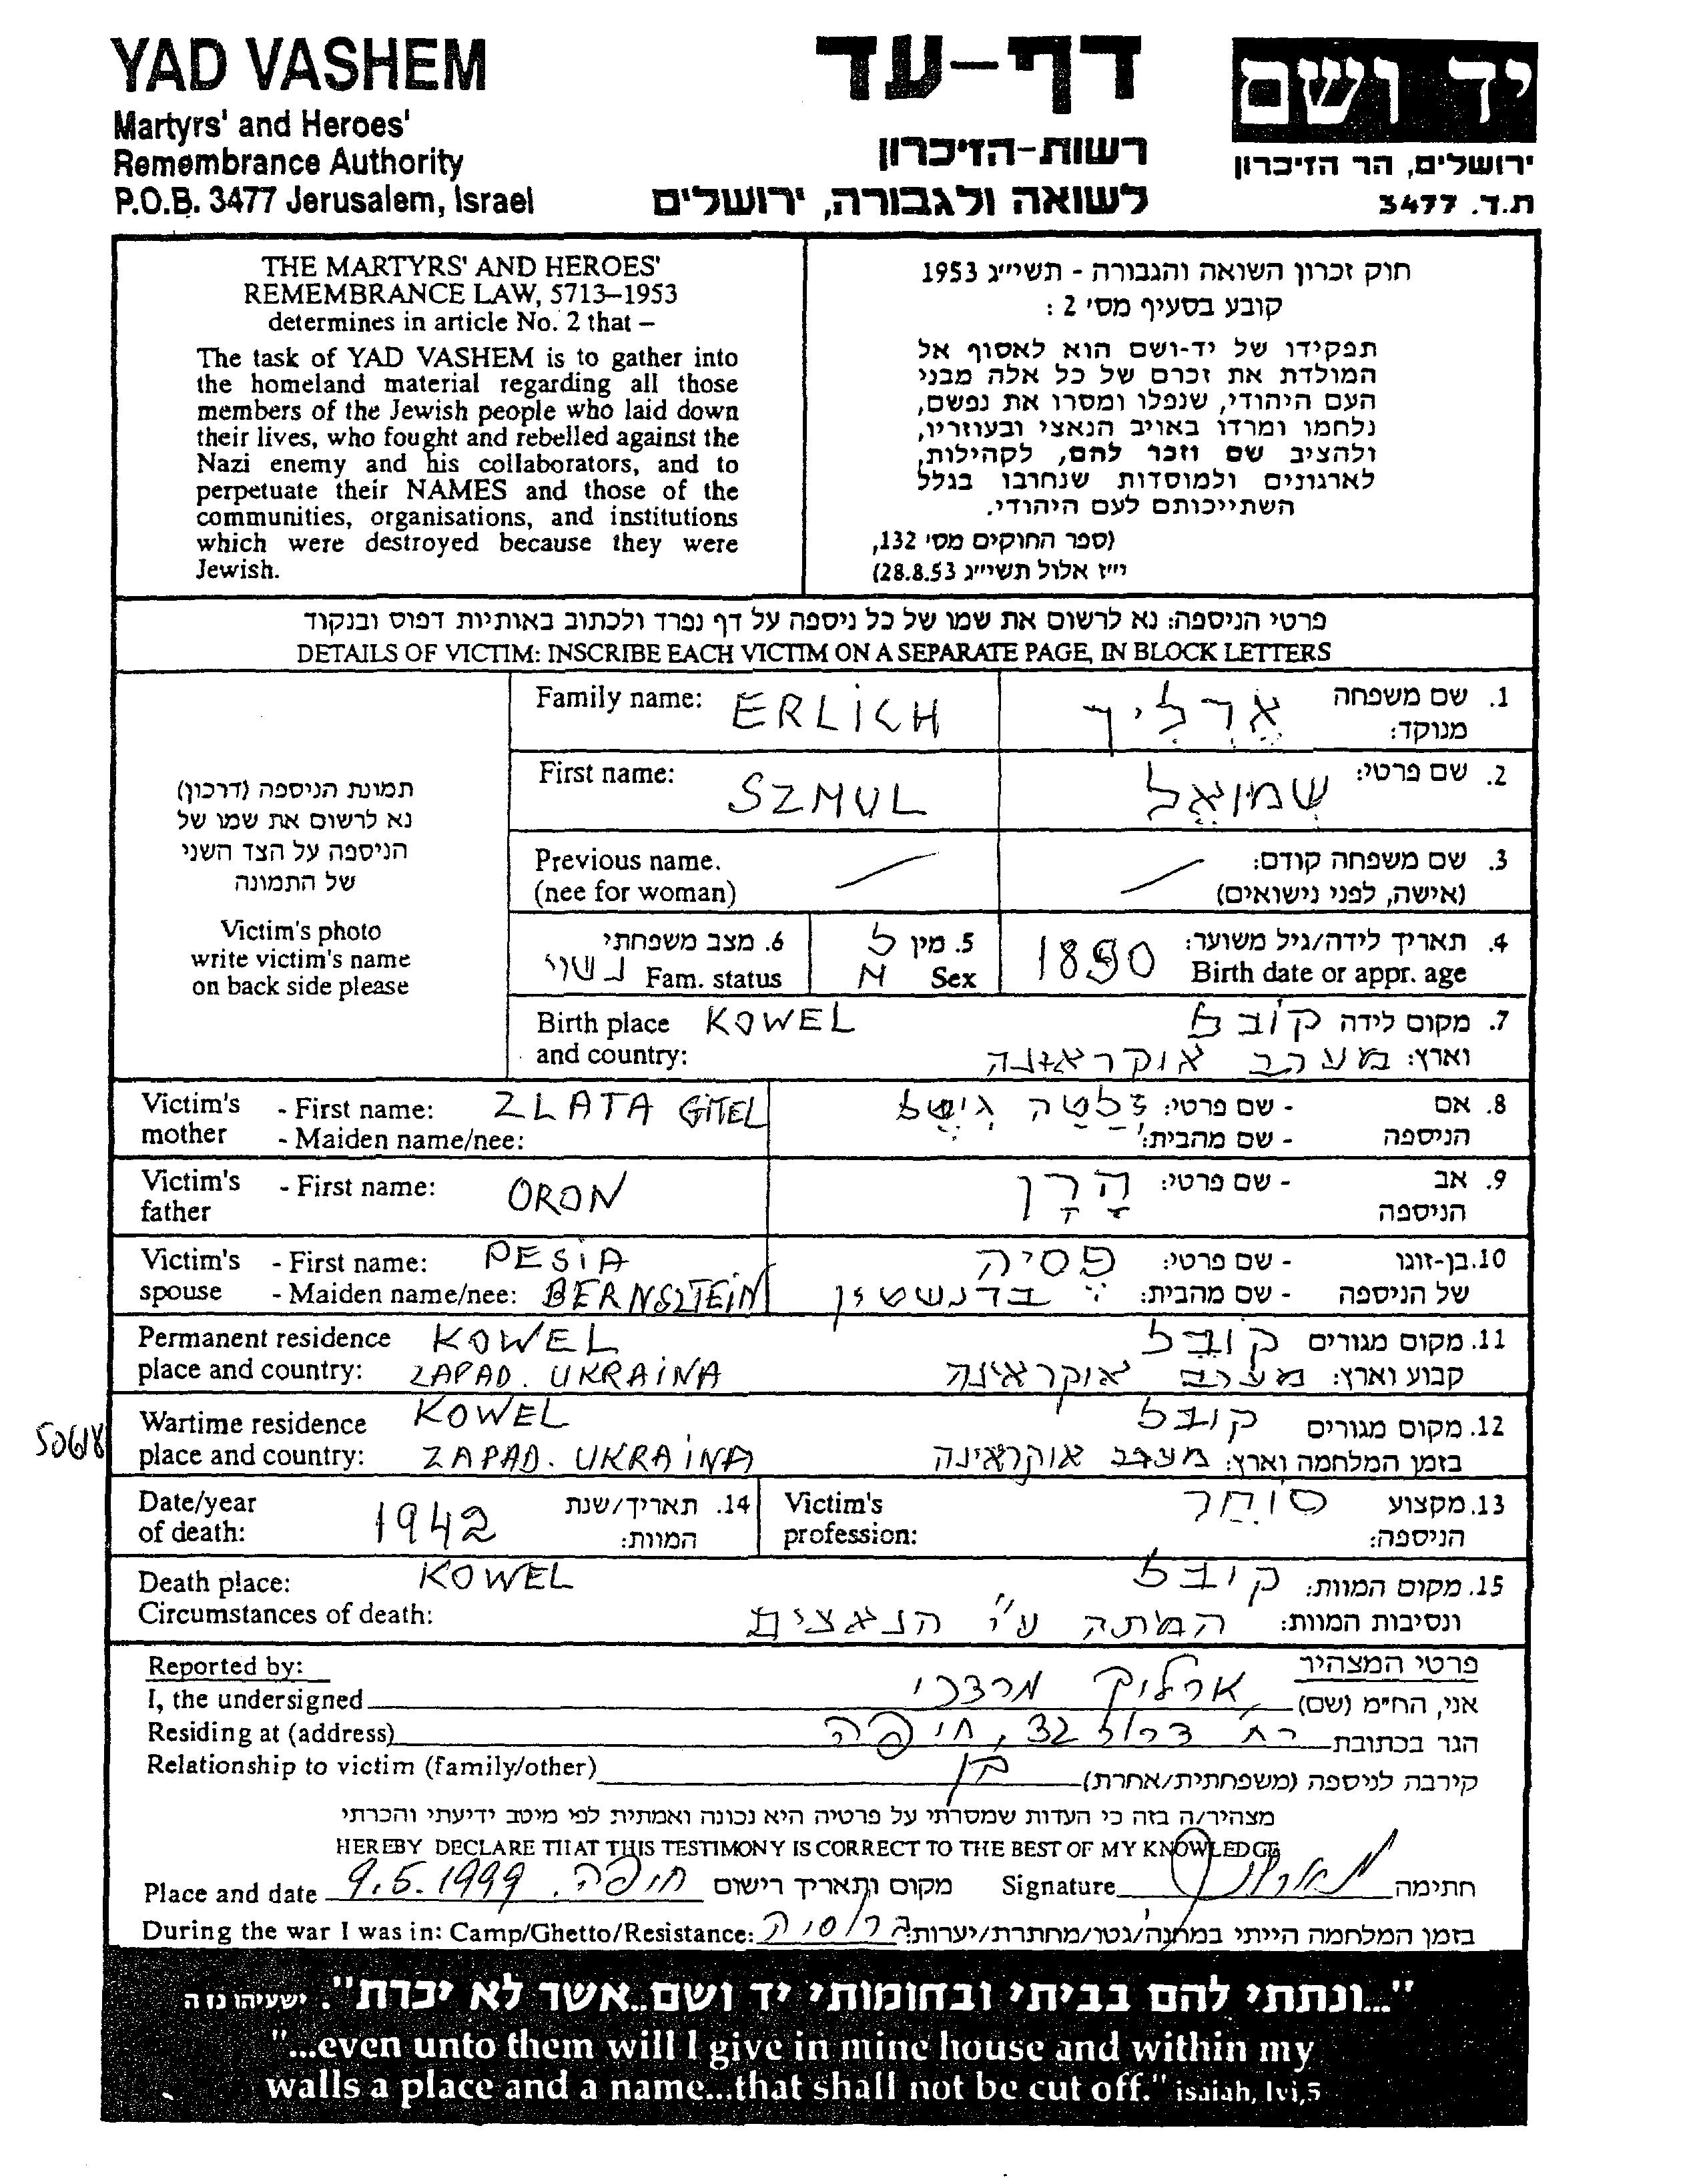 YAD VASHEM
Martyrs' and Heroes'
Remembrance Authority
P.O.B. 3477 Jerusalem, Israel
דף-עד
רשות-הזיכרון
לשואה ולגבורה, ירושלים
יד ושם
ירושלים, הר הזיכרון
ת.ד. 3477
THE MARTYRS' AND HEROES'
REMEMBRANCE LAW, 5713–1953
determines in article No. 2 that –
The task of YAD VASHEM is to gather into
the homeland material regarding all those
members of the Jewish people who laid down
their lives, who fought and rebelled against the
Nazi enemy and his collaborators, and to
perpetuate their NAMES and those of the
communities, organisations, and institutions
which were destroyed because they were
Jewish.
חוק זכרון השואה והגבורה - תשי״ג 1953
קובע בסעיף מס׳ 2 :
תפקידו של יד-ושם הוא לאסוף אל
המולדת את זכרם של כל אלה מבני
העם היהודי, שנפלו ומסרו את נפשם,
נלחמו ומרדו באויב הנאצי ובעוזריו,
ולהציב שם וזכר להם, לקהילות,
לארגונים ולמוסדות שנחרבו בגלל
השתייכותם לעם היהודי.
(ספר החוקים מס׳ 132,
י״ז אלול תשי״ג 28.8.53)
פרטי הניספה: נא לרשום את שמו של כל ניספה על דף נפרד ולכתוב באותיות דפוס ובנקוד
DETAILS OF VICTIM: INSCRIBE EACH VICTIM ON A SEPARATE PAGE, IN BLOCK LETTERS
תמונת הניספה (דרכון)
נא לרשום את שמו של
הניספה על הצד השני
של התמונה
Victim's photo
write victim's name
on back side please
Family name: ERLICH
1. שם משפחה מנוקד: ארליך
First name: SZMUL
2. שם פרטי: שמואל
Previous name.
(nee for woman)
3. שם משפחה קודם:
(אישה, לפני נישואים)
4. תאריך לידה/גיל משוער: 1890
Birth date or appr. age
5. מין ז
M Sex
6. מצב משפחתי
Fam. status נשוי
Birth place KOWEL
and country:
7. מקום לידה קובל
וארץ: מערב אוקראינה
Victim's mother - First name: ZLATA GITEL
- Maiden name/nee:
8. אם הניספה - שם פרטי: זלטה גיטל
- שם מהבית:
Victim's father - First name: ORON
9. אב הניספה - שם פרטי: הרן
Victim's - First name: PESIA
spouse - Maiden name/nee: BERNSZTEIN
10. בן-זוגו - שם פרטי: פסיה
של הניספה - שם מהבית: ברנשטיין
Permanent residence KOWEL
place and country: ZAPAD. UKRAINA
11. מקום מגורים קובל
קבוע וארץ: מערב אוקראינה
50618
Wartime residence KOWEL
place and country: ZAPAD. UKRAINA
12. מקום מגורים קובל
בזמן המלחמה וארץ: מערב אוקראינה
Date/year
of death: 1942
14. תאריך/שנת
המוות:
Victim's
profession:
13. מקצוע סוחר
הניספה:
Death place: KOWEL
Circumstances of death:
15. מקום המוות: קובל
ונסיבות המוות: המתה ע״י הנאצים
Reported by:
פרטי המצהיר
I, the undersigned
אני, הח״מ (שם) ארליך מרדכי
Residing at (address)
הגר בכתובת 32, חיפה
Relationship to victim (family/other)
קירבה לניספה (משפחתית/אחרת) בן
מצהיר/ה בזה כי העדות שמסרתי על פרטיה היא נכונה ואמתית לפי מיטב ידיעתי והכרתי
HEREBY DECLARE THAT THIS TESTIMONY IS CORRECT TO THE BEST OF MY KNOWLEDGE
Place and date 9.5.1999 חיפה מקום ותאריך רישום
Signature חתימה
During the war I was in: Camp/Ghetto/Resistance: ברוסיה
בזמן המלחמה הייתי במחנה/גטו/מחתרת/יערות:
"...ונתתי להם בביתי ובחומותי יד ושם..אשר לא יכרת". ישעיהו נו ה
"...even unto them will I give in mine house and within my
walls a place and a name...that shall not be cut off." isaiah, lvi,5